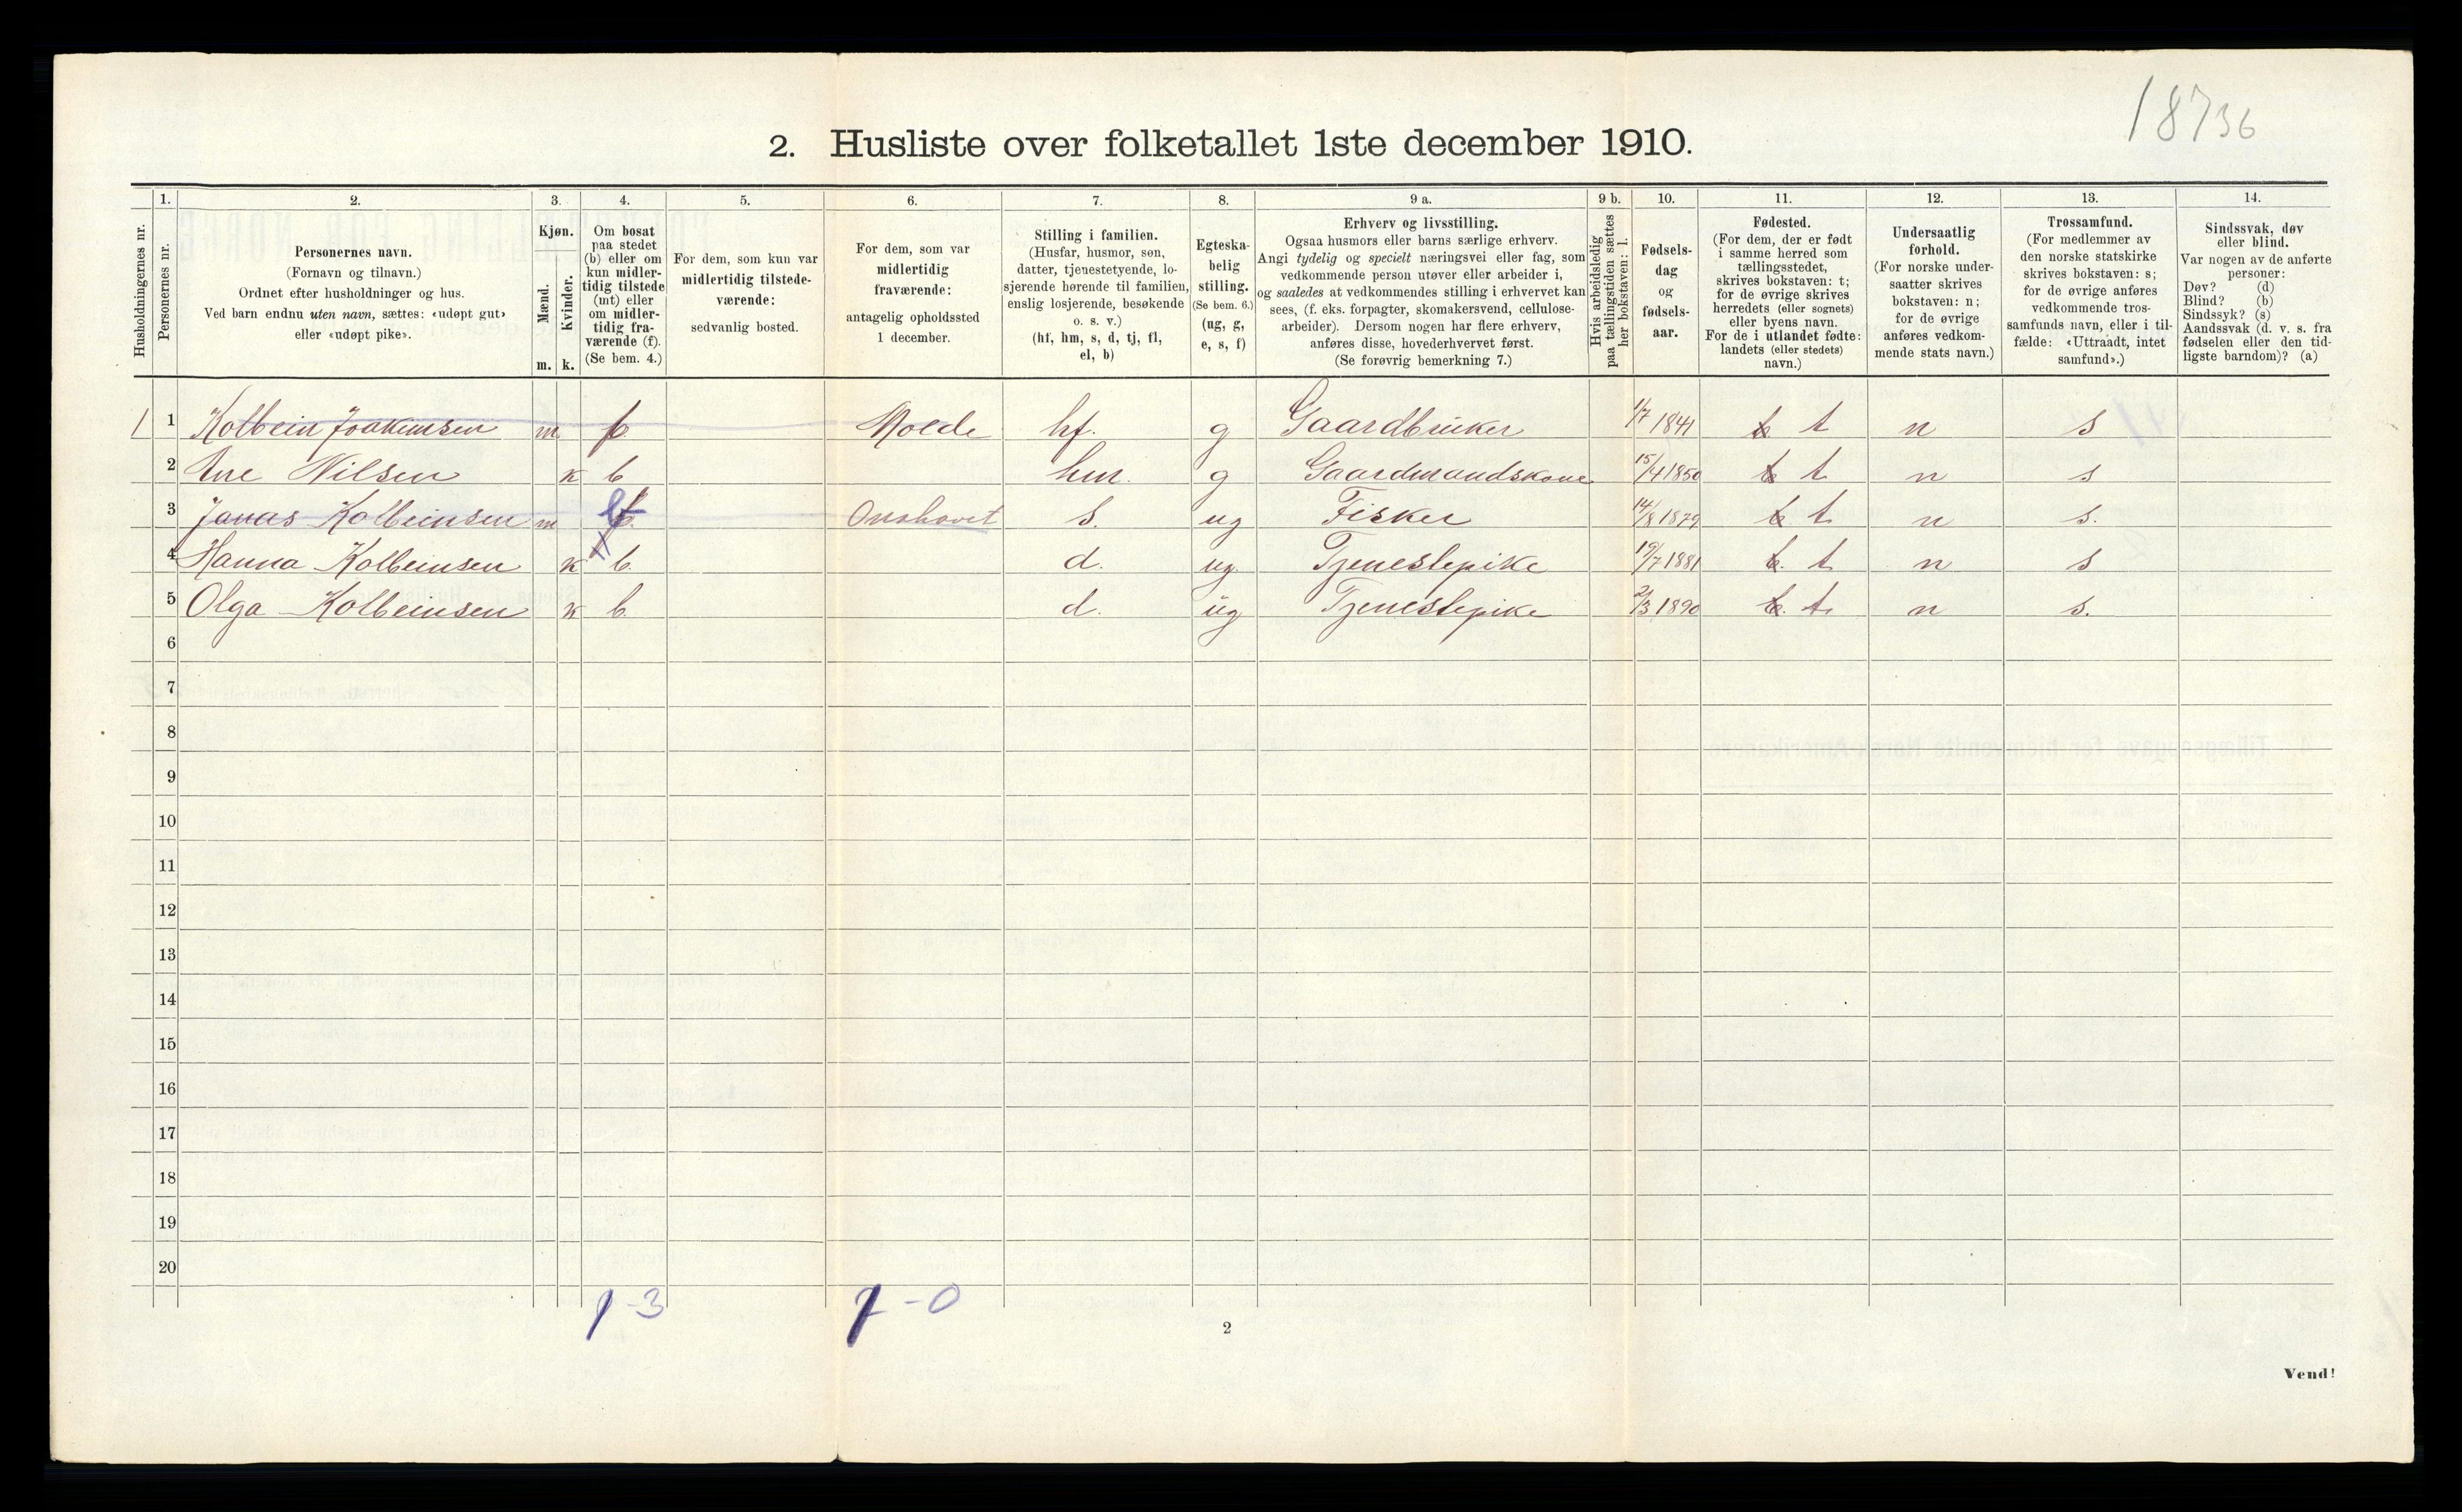 18736
2. Husliste over folketallet 1ste december 1910.
Husholdningernes nr.
1.
Personernes nr.
2.
Personernes navn.
(Fornavn og tilnavn.)
Ordnet efter husholdninger og hus.
Ved barn endnu uten navn, sættes: «udøpt gut»
eller «udøpt pike».
3.
Kjøn.
Mænd.
Kvinder.
m. k.
4.
Om bosat
paa stedet
(b) eller om
kun midler-
tidig tilstede
(mt) eller
om midler-
tidig fra-
værende (f).
(Se bem. 4.)
5.
For dem, som kun var
midlertidig tilstede-
værende:
sedvanlig bosted.
6.
For dem, som var
midlertidig
fraværende:
antagelig opholdssted
1 december.
7.
Stilling i familien.
(Husfar, husmor, søn,
datter, tjenestetyende, lo-
sjerende hørende til familien,
enslig losjerende, besøkende
o. s. v.)
(hf, hm, s, d, tj, fl,
el, b)
8.
Egteska-
belig
stilling.
(Se bem. 6.)
(ug, g,
e, s, f)
9 a.
Erhverv og livsstilling.
Ogsaa husmors eller barns særlige erhverv.
Angi tydelig og specielt næringsvei eller fag, som
vedkommende person utøver eller arbeider i,
og saaledes at vedkommendes stilling i erhvervet kan
sees, (f. eks. forpagter, skomakersvend, cellulose-
arbeider). Dersom nogen har flere erhverv,
anføres disse, hovederhvervet først.
(Se forøvrig bemerkning 7.)
9 b.
Hvis arbeidsledig
paa tællingstiden sættes
her bokstaven: l.
10.
Fødsels-
dag
og
fødsels-
aar.
11.
Fødested.
(For dem, der er født
i samme herred som
tællingsstedet,
skrives bokstaven: t;
for de øvrige skrives
herredets (eller sognets)
eller byens navn.
For de i utlandet fødte:
landets (eller stedets)
navn.)
12.
Undersaatlig
forhold.
(For norske under-
saatter skrives
bokstaven: n;
for de øvrige
anføres vedkom-
mende stats navn.)
13.
Trossamfund.
(For medlemmer av
den norske statskirke
skrives bokstaven: s;
for de øvrige anføres
vedkommende tros-
samfunds navn, eller i til-
fælde: «Uttraadt, intet
samfund».)
14.
Sindssvak, døv
eller blind.
Var nogen av de anførte
personer:
Døv? (d)
Blind? (b)
Sindssyk? (s)
Aandssvak (d. v. s. fra
fødselen eller den tid-
ligste barndom)? (a)
1 1 Kolbein Joakimsen m f Molde hf. g Gaardbruker 1/7 1841 t n s
2 Ane Nilsen k b hm. g Gaardmandskone 15/4 1850 t n s
3 Jonas Kolbeinsen m f Onshavet s. ug Fisker 14/8 1879 t n s.
4 Hanna Kolbeinsen k b. d. ug. Tjenestepike 19/7 1881 t n s
5 Olga Kolbeinsen k b. d. ug Tjenestepike 21/3 1890 t. n s.
6
7
8
9
10
11
12
13
14
15
16
17
18
19
20
1-3 1-0
2
Vend!